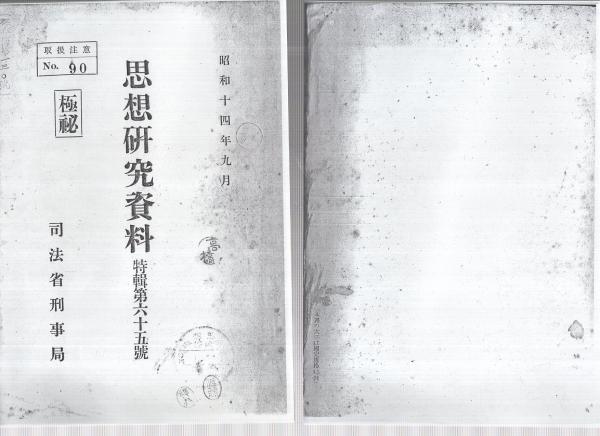 昭和十四年九月
思想研究資料 特輯第六十五號
司法省刑事局
取扱注意
No. 90
極祕
高橋